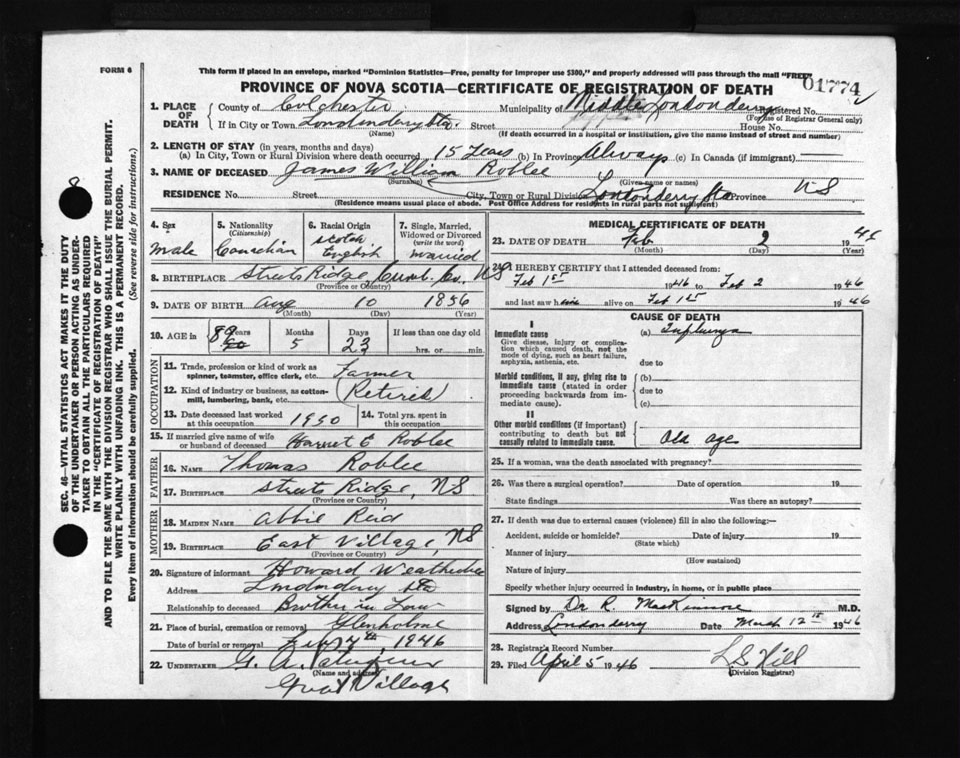 FORM 6
This form if placed in an envelope, marked "Dominion Statistics—Free, penalty for improper use $300," and properly addressed will pass through the mail "FREE"
01774
PROVINCE OF NOVA SCOTIA—CERTIFICATE OF REGISTRATION OF DEATH
1. PLACE OF DEATH County of Colchester Municipality of Middle Londonderry Registered No.
(For use of Registrar General only)
If in City or Town Londonderry Sta. Street House No.
(Name) (If death occurred in a hospital or institution, give the name instead of street and number)
2. LENGTH OF STAY (in years, months and days)
(a) In City, Town or Rural Division where death occurred 15 Years (b) In Province Always (c) In Canada (if immigrant)
3. NAME OF DECEASED James William Roblee
(Surname) (Given name or names)
RESIDENCE No. Street City, Town or Rural Division Londonderry Sta Province NS
(Residence means usual place of abode. Post Office Address for residents in rural parts not sufficient)
4. Sex
male
5. Nationality
(Citizenship)
Canadian
6. Racial Origin
Scotch
English
7. Single, Married, Widowed or Divorced
(write the word)
married
8. BIRTHPLACE Streets Ridge, Cumb. Co., NS
(Province or Country)
9. DATE OF BIRTH Aug 10 1856
(Month) (Day) (Year)
10. AGE in Years Months Days If less than one day old
89 5 23 hrs. or min.
OCCUPATION
11. Trade, profession or kind of work as spinner, teamster, office clerk, etc. Farmer
12. Kind of industry or business, as cotton-mill, lumbering, bank, etc. (Retired)
13. Date deceased last worked at this occupation 1930
14. Total yrs. spent in this occupation
15. If married give name of wife or husband of deceased Harriet E Roblee
FATHER
16. NAME Thomas Roblee
17. BIRTHPLACE Streets Ridge, NS
(Province or Country)
MOTHER
18. MAIDEN NAME Abbie Reid
19. BIRTHPLACE East Village, NS
(Province or Country)
20. Signature of informant Howard Weatherbee
Address Londonderry Sta
Relationship to deceased Brother in Law
21. Place of burial, cremation or removal Glenholme
Date of burial or removal Feb 4th, 1946
22. UNDERTAKER G. A.
(Name and address)
Great Village
MEDICAL CERTIFICATE OF DEATH
23. DATE OF DEATH Feb 2 1946
(Month) (Day) (Year)
24. I HEREBY CERTIFY that I attended deceased from:
Feb 1st 1946 to Feb 2 1946
and last saw him alive on Feb 1st 1946
CAUSE OF DEATH
I
Immediate cause
Give disease, injury or complication which caused death, not the mode of dying, such as heart failure, asphyxia, asthenia, etc.
(a) Influenza
due to
Morbid conditions, if any, giving rise to immediate cause (stated in order proceeding backwards from immediate cause).
(b)
due to
(c)
II
Other morbid conditions (if important) contributing to death but not causally related to immediate cause.
Old age
25. If a woman, was the death associated with pregnancy?
26. Was there a surgical operation? Date of operation 19
State findings Was there an autopsy?
27. If death was due to external causes (violence) fill in also the following:—
Accident, suicide or homicide? Date of injury 19
(State which)
Manner of injury
(How sustained)
Nature of injury
Specify whether injury occurred in industry, in home, or in public place
Signed by Dr R. M.D.
Address Londonderry Date March 12th 1946
28. Registrar's Record Number
29. Filed April 5 1946 L S Hill
(Division Registrar)
SEC. 46—VITAL STATISTICS ACT MAKES IT THE DUTY
OF THE UNDERTAKER OR PERSON ACTING AS UNDER-
TAKER TO OBTAIN ALL THE PARTICULARS REQUIRED
IN THE "CERTIFICATE OF REGISTRATION OF DEATH"
AND TO FILE THE SAME WITH THE DIVISION REGISTRAR WHO SHALL ISSUE THE BURIAL PERMIT.
WRITE PLAINLY WITH UNFADING INK. THIS IS A PERMANENT RECORD.
Every item of information should be carefully supplied. (See reverse side for instructions.)